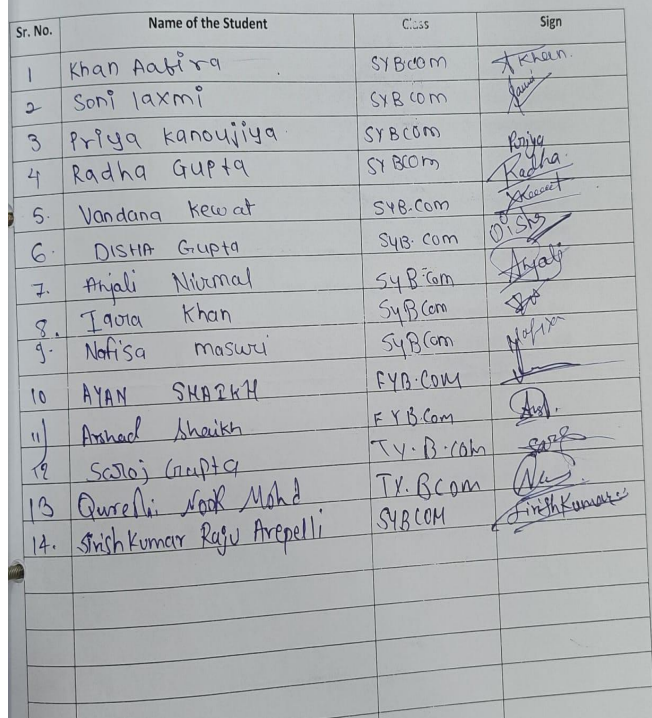 Sr. No. Name of the Student Class Sign
1 Khan Aafira SYBCOM AKhan.
2 Soni laxmi SYBCOM
3 Priya Kanoujiya SYBCOM Priya
4 Radha Gupta SYBCOM Radha.
5. Vandana Kewat SYB.COM
6. DISHA Gupta SYB.COM Disha
7. Anjali Nirmal SYB.Com Anjali
8. Iqora Khan SYBCom
9. Nafisa masuri SYBCom Nafisa
10 AYAN SHAIKH FYB.COM
11) Arshad Shaikh FYB.Com
12 Saroj Gupta TY.B.com Saroj
13 Qureshi Noor Mohd TY.BCom
14. Sirish Kumar Raju Arepelli SYBCOM Sirish Kumar